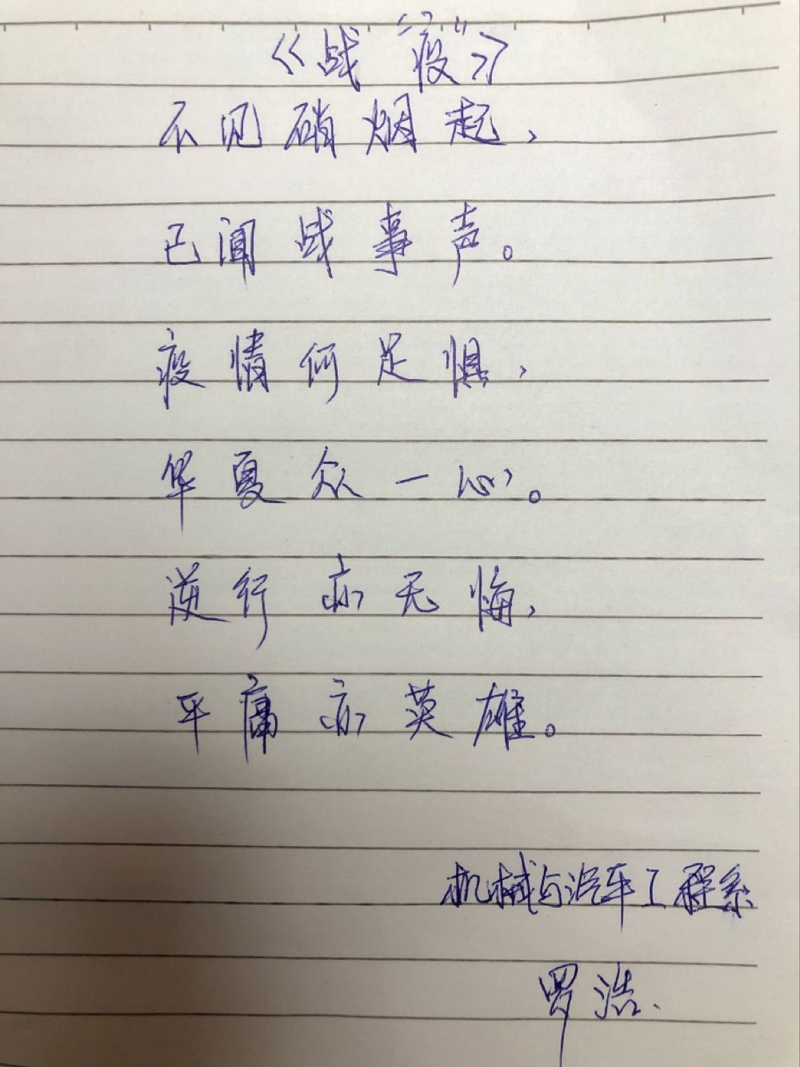 《战“疫”》
不见硝烟起,
已闻战事声。
疫情何足惧,
华夏众一心。
逆行亦无悔,
平庸亦英雄。
机械与汽车工程系
罗浩.